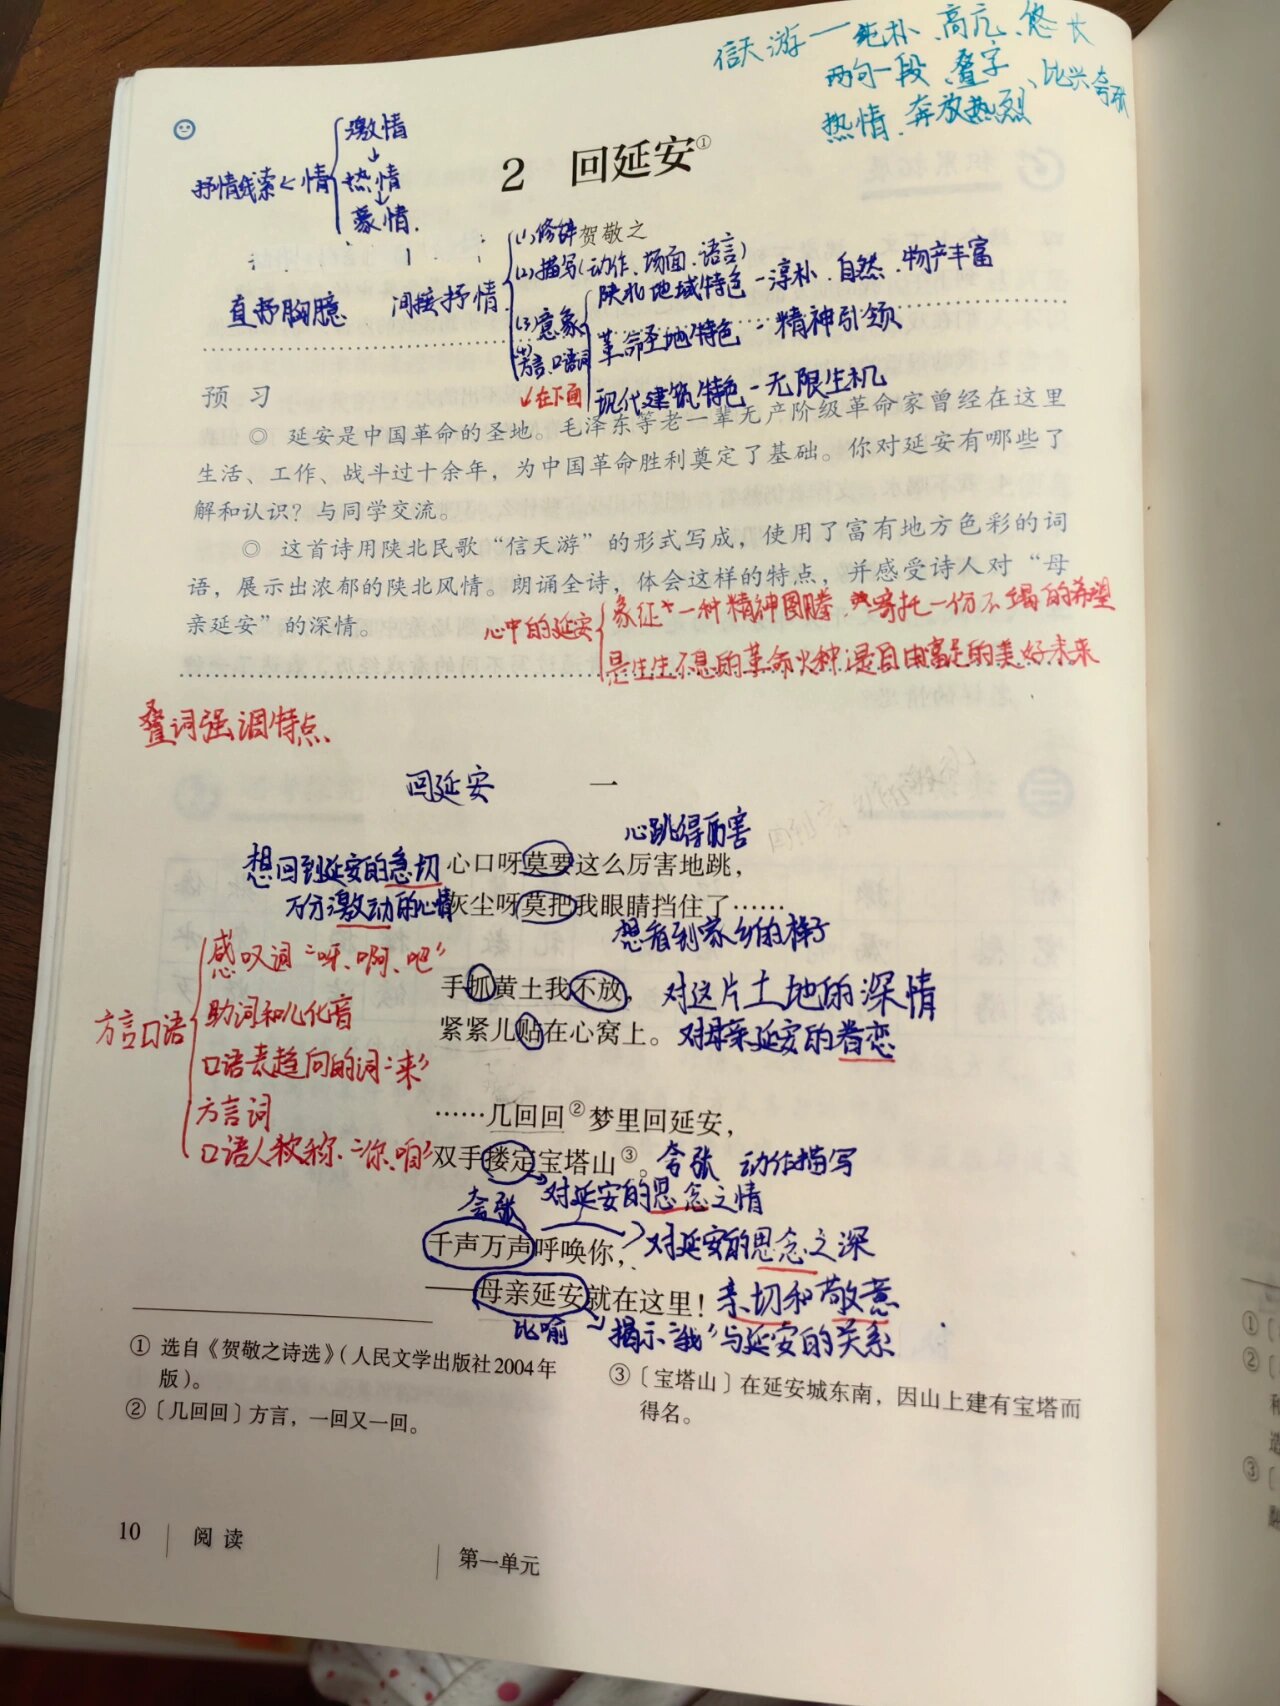 信天游—纯朴、高亢、悠长
两句一段、叠字、比兴夸张
热情、奔放热烈
激情
↓
抒情线索<情 热情
↓
豪情.
2 回延安①
(1)修辞 贺敬之
(2)描写(动作、场面、语言)
直抒胸臆 间接抒情
(3)意象 陕北地域特色-淳朴、自然、物产丰富
革命圣地特色-精神引领
(4)方言、口语词
↙在下面 现代建筑特色-无限生机
预 习
◎ 延安是中国革命的圣地。毛泽东等老一辈无产阶级革命家曾经在这里
生活、工作、战斗过十余年，为中国革命胜利奠定了基础。你对延安有哪些了
解和认识？与同学交流。
◎ 这首诗用陕北民歌“信天游”的形式写成，使用了富有地方色彩的词
语，展示出浓郁的陕北风情。朗诵全诗，体会这样的特点，并感受诗人对“母
亲延安”的深情。
心中的延安 象征一种精神图腾、寄托一份不竭的希望
是生生不息的革命火种、是自由富足的美好未来
叠词强调特点、
回延安 一
心跳得厉害
想回到延安的急切 心口呀莫要这么厉害地跳，
万分激动的心情 灰尘呀莫把我眼睛挡住了……
想看到家乡的样子
手抓黄土我不放， 对这片土地的深情
紧紧儿贴在心窝上。 对母亲延安的眷恋
方言口语
感叹词“呀、啊、吧”
助词和儿化音
口语表趋向的词“来”
方言词
口语人称称、“你、咱”
……几回回②梦里回延安，
双手搂定宝塔山③。 夸张 动作描写
对延安的思念之情
夸张
千声万声呼唤你， 对延安的思念之深
——母亲延安就在这里！ 亲切和敬意
比喻 揭示“我”与延安的关系
① 选自《贺敬之诗选》（人民文学出版社2004年
版）。
②〔几回回〕方言，一回又一回。
③〔宝塔山〕在延安城东南，因山上建有宝塔而
得名。
10 阅 读
第一单元